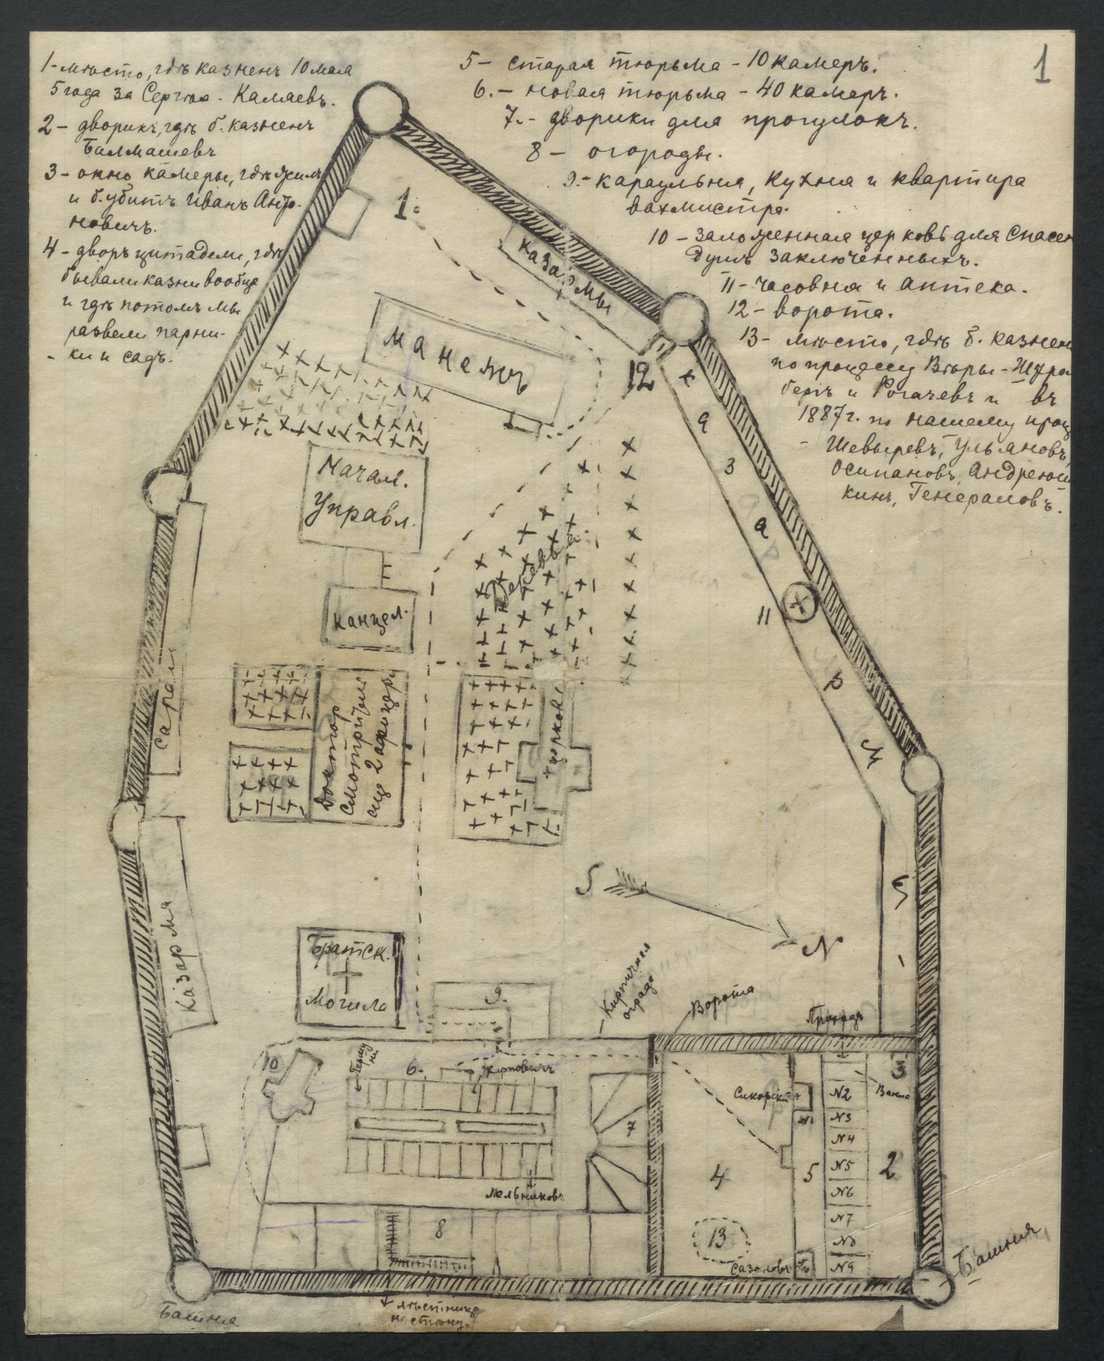 1
1- мѣсто, гдѣ казненъ 10 мая
5 года за Сергѣя - Каляевъ.
2 - дворикъ, гдѣ б. казненъ
Балмашевъ
3 - окно камеры, гдѣ жилъ
и б. убитъ Иванъ Анто-
новичъ.
4 - дворъ цитадели, гдѣ
бывали казни вообще
и гдѣ потомъ мы
развели парни-
- ки и садъ.
5 - старая тюрьма - 10 камеръ.
6. - новая тюрьма - 40 камеръ.
7. - дворики для прогулокъ.
8 - огороды.
9. - караульня, кухня и квартира
вахмистра.
10 - заложенная церковь для спасен
душъ заключенныхъ.
11 - часовня и аптека.
12 - ворота.
13 - мѣсто, гдѣ б. казнен
по процессу Вѣры -
и Рогачевъ и въ
1887 г. по нашему проц
- Шевыревъ, Ульяновъ,
Осипановъ, Андреюш
кинъ, Генераловъ.
1.
казармы
манежъ
12
Начал.
Управл.
деревья
канцел.
к а з а р м ы
11
сараи
Докторъ
смотритель
еще 2 офицера
церковь
казарма
S
N
Братск.
Могила
9.
Кирпичная
ограда
Ворота
10
6.
7
8
4
5
2
3
Ванна
N1
N2
N3
N4
N5
N6
N7
N8
N9
13
Сазоновъ
Башня
Башня
лѣстница
на стѣну.